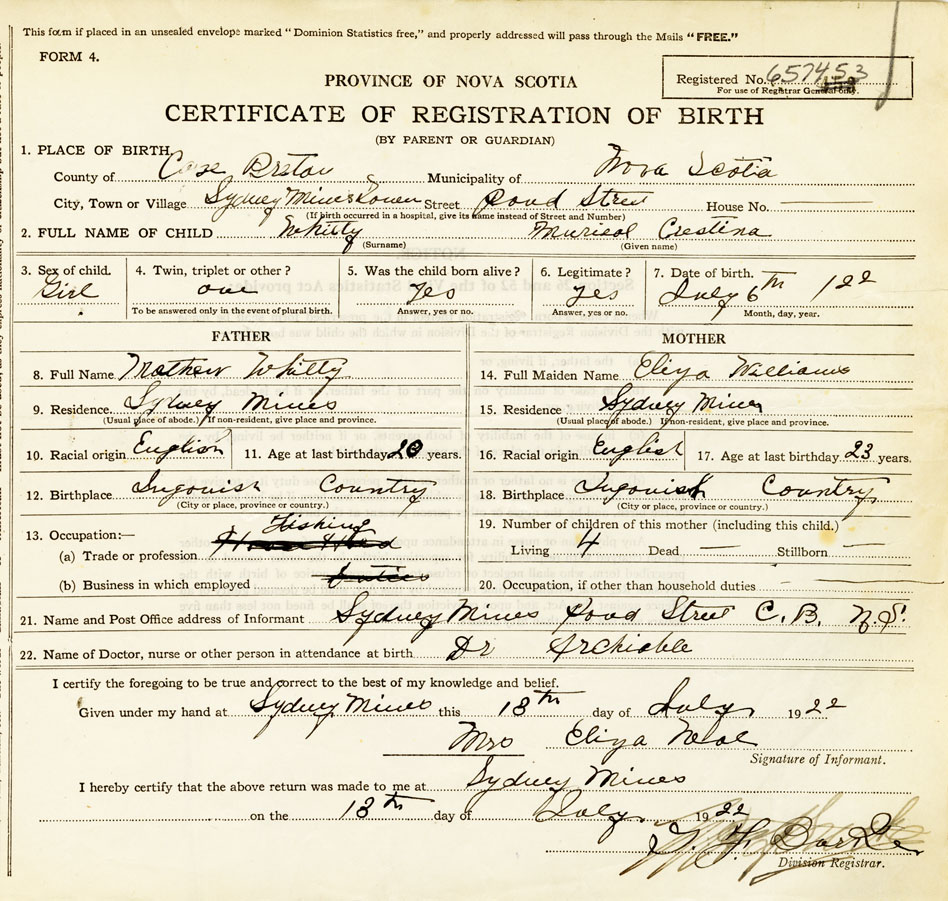 This form if placed in an unsealed envelope marked "Dominion Statistics free," and properly addressed will pass through the Mails "FREE."
FORM 4.
Registered No. 657453
For use of Registrar General only.
PROVINCE OF NOVA SCOTIA
CERTIFICATE OF REGISTRATION OF BIRTH
(BY PARENT OR GUARDIAN)
1. PLACE OF BIRTH
County of Cape Breton Municipality of Nova Scotia
City, Town or Village Sydney Mines Street Pond Street House No. —
(If birth occurred in a hospital, give its name instead of Street and Number)
2. FULL NAME OF CHILD Whitty Murieal Crestina
(Surname) (Given name)
3. Sex of child. 4. Twin, triplet or other? 5. Was the child born alive? 6. Legitimate? 7. Date of birth.
Girl one yes yes July 6th 122
To be answered only in the event of plural birth. Answer, yes or no. Answer, yes or no. Month, day, year.
FATHER MOTHER
8. Full Name Mathew Whitty 14. Full Maiden Name Eliza Williams
9. Residence. Sydney Mines 15. Residence Sydney Mines
(Usual place of abode.) If non-resident, give place and province. (Usual place of abode.) If non-resident, give place and province.
10. Racial origin English 11. Age at last birthday years. 16. Racial origin English 17. Age at last birthday 23 years.
12. Birthplace Ingonish Country 18. Birthplace Ingonish Country
(City or place, province or country.) (City or place, province or country.)
13. Occupation:— Fishing 19. Number of children of this mother (including this child.)
(a) Trade or profession Living 4 Dead — Stillborn —
(b) Business in which employed 20. Occupation, if other than household duties —
21. Name and Post Office address of Informant Sydney Mines Pond Street C. B. N. S.
22. Name of Doctor, nurse or other person in attendance at birth Dr Archiable
I certify the foregoing to be true and correct to the best of my knowledge and belief.
Given under my hand at Sydney Mines this 13th day of July 1922
Mrs Eliza
Signature of Informant.
I hereby certify that the above return was made to me at Sydney Mines
on the 13th day of July 1922
Division Registrar.